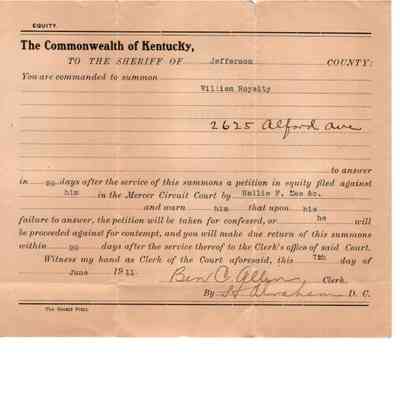 EQUITY.
The Commonwealth of Kentucky,
TO THE SHERIFF OF Jefferson COUNTY:
You are commanded to summon
William Royalty
2625 Alford ave
to answer
in 20 days after the service of this summons a petition in equity filed against
him in the Mercer Circuit Court by Hallie F. &c.
and warn him that upon his
failure to answer, the petition will be taken for confessed, or he will
be proceeded against for contempt, and you will make due return of this summons
within 20 days after the service thereof to the Clerk's office of said Court.
Witness my hand as Clerk of the Court aforesaid, this 7th day of
June 1911 Ben C. Allen Clerk.
By Abraham D. C.
The Herald Press